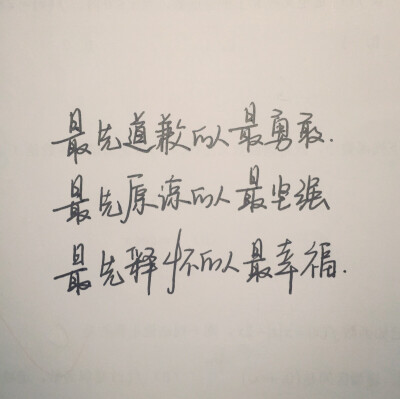 最先道歉的人最勇敢.
最先原谅的人最坚强
最先释怀的人最幸福.